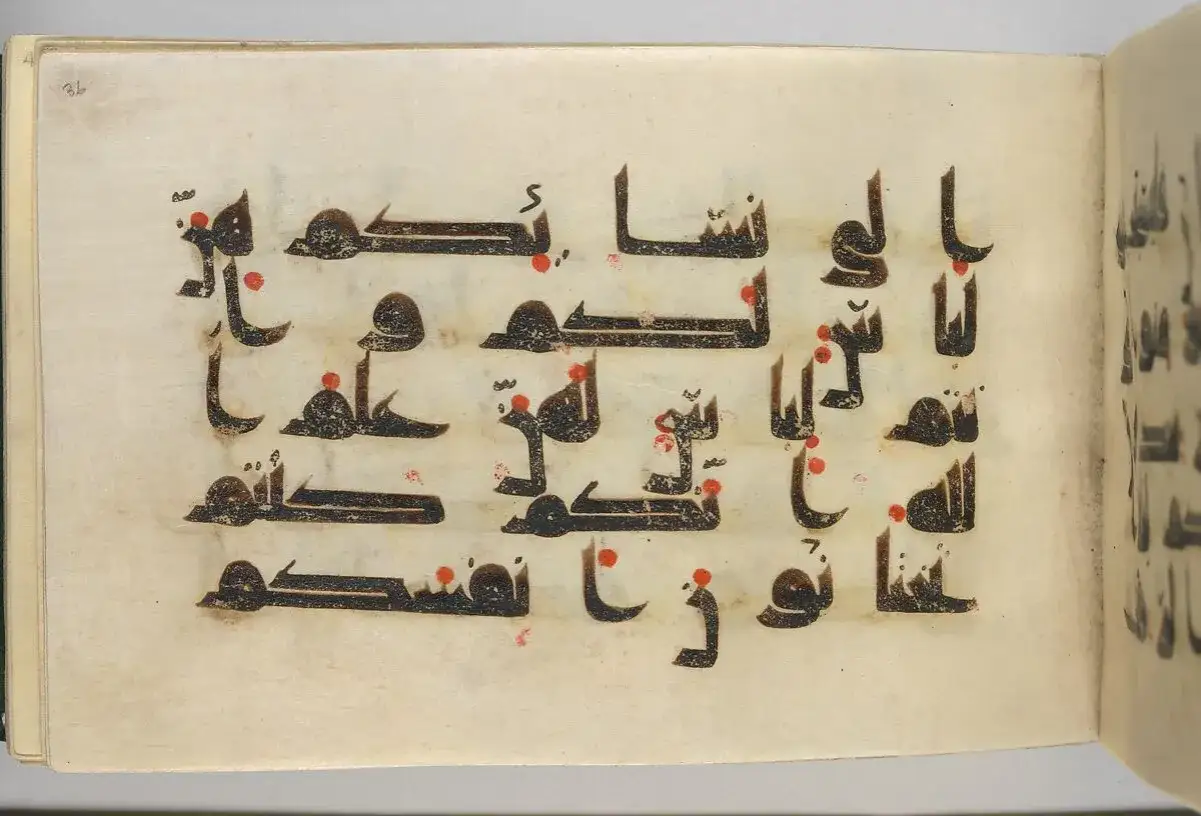 36
الى نسائكم هن
لباس لكم وا
نتم لباس لهن علم ا
لله انكم كنتم
تختانون انفسكم